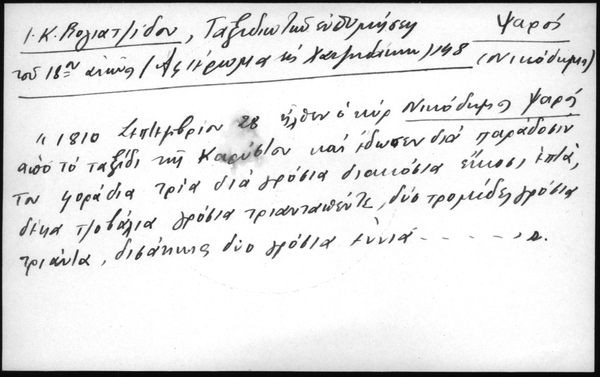 Ι. Κ. Βογιατζίδου, Ταξιδιωτικαί ενθυμήσεις Ψαρός
του 18ου αιώνος (Αφιέρωμα εις Χατζιδάκιν) 148 (Νικόδημος)
" 1810 Σεπτεμβρίου 28 ήλθεν ο κύρ Νικόδημος Ψαρός
από το ταξίδι της Καρύστου και έδωσεν διά παράδοσιν
του φοράδια τρία διά γρόσια διακόσια είκοσι επτά,
δέκα τζοβάλια γρόσια τριανταπέντε, δύο τρομίδες γρόσια
τριάντα, δισάκκιας δύο γρόσια εννιά - - - - - , ».